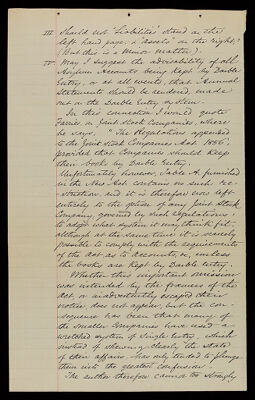 III. Should not "Liabilities" stand on the
left hand page, & "assets" on the right?
(But this is a minor matter.)
IV. May I suggest the advisability of all
Asylum Accounts being kept by Double
Entry, or at all events, that Annual
Statements should be rendered, made
out on the Double Entry system.
In this connection I would quote
on Joint Stock Companies, where
he says, "The Regulations appended
to the Joint Stock Companies Act 1856,
provided that Companies should keep
their books by Double Entry.
Unfortunately however, Table A, furnished
in the New Act contains no such
and it is therefore now left
entirely to the option of any Joint Stock
Company, governed by such regulations
to adopt what system it may think fit
although at the same time it is scarcely
possible to comply with the requirements
of the act as to accounts, &c, unless
the books are kept by Double Entry.
Whether this important omission
was intended by the framers of the
Act, or inadvertently escaped their
notice does not appear, but the con-
sequence has been that many of
the smaller Companies have used a
wretched system of Single Entry, which
instead of shewing clearly the state
of their affairs has only tended to plunge
them into the greatest confusion.
The author therefore cannot too strongly